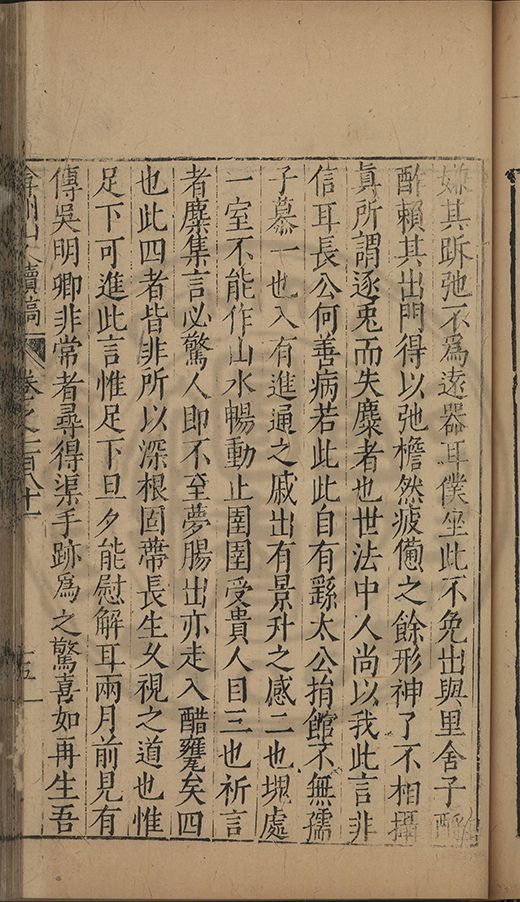 嫌其跅弛不爲遠器耳僕坐此不免出與里舍子酬
酢賴其出門得以弛檐然疲憊之餘形神了不相攝
眞所謂逐兎而失麋者也世法中人尚以我此言非
信耳長公何善病若此此自有繇太公捐館不無孺
子慕一也入有進通之戚出有景升之感二也塊處
一室不能作山水暢動止圉圉受貴人目三也祈言
者麇集言必驚人即不至夢腸出亦走入醋甕矣四
也此四者皆非所以深根固蔕長生久視之道也惟
足下可進此言惟足下旦夕能慰解耳兩月前見有
傳吳明卿非常者尋得渠手跡爲之驚喜如再生吾
弇州山人續稿
卷之一百八十一
十五